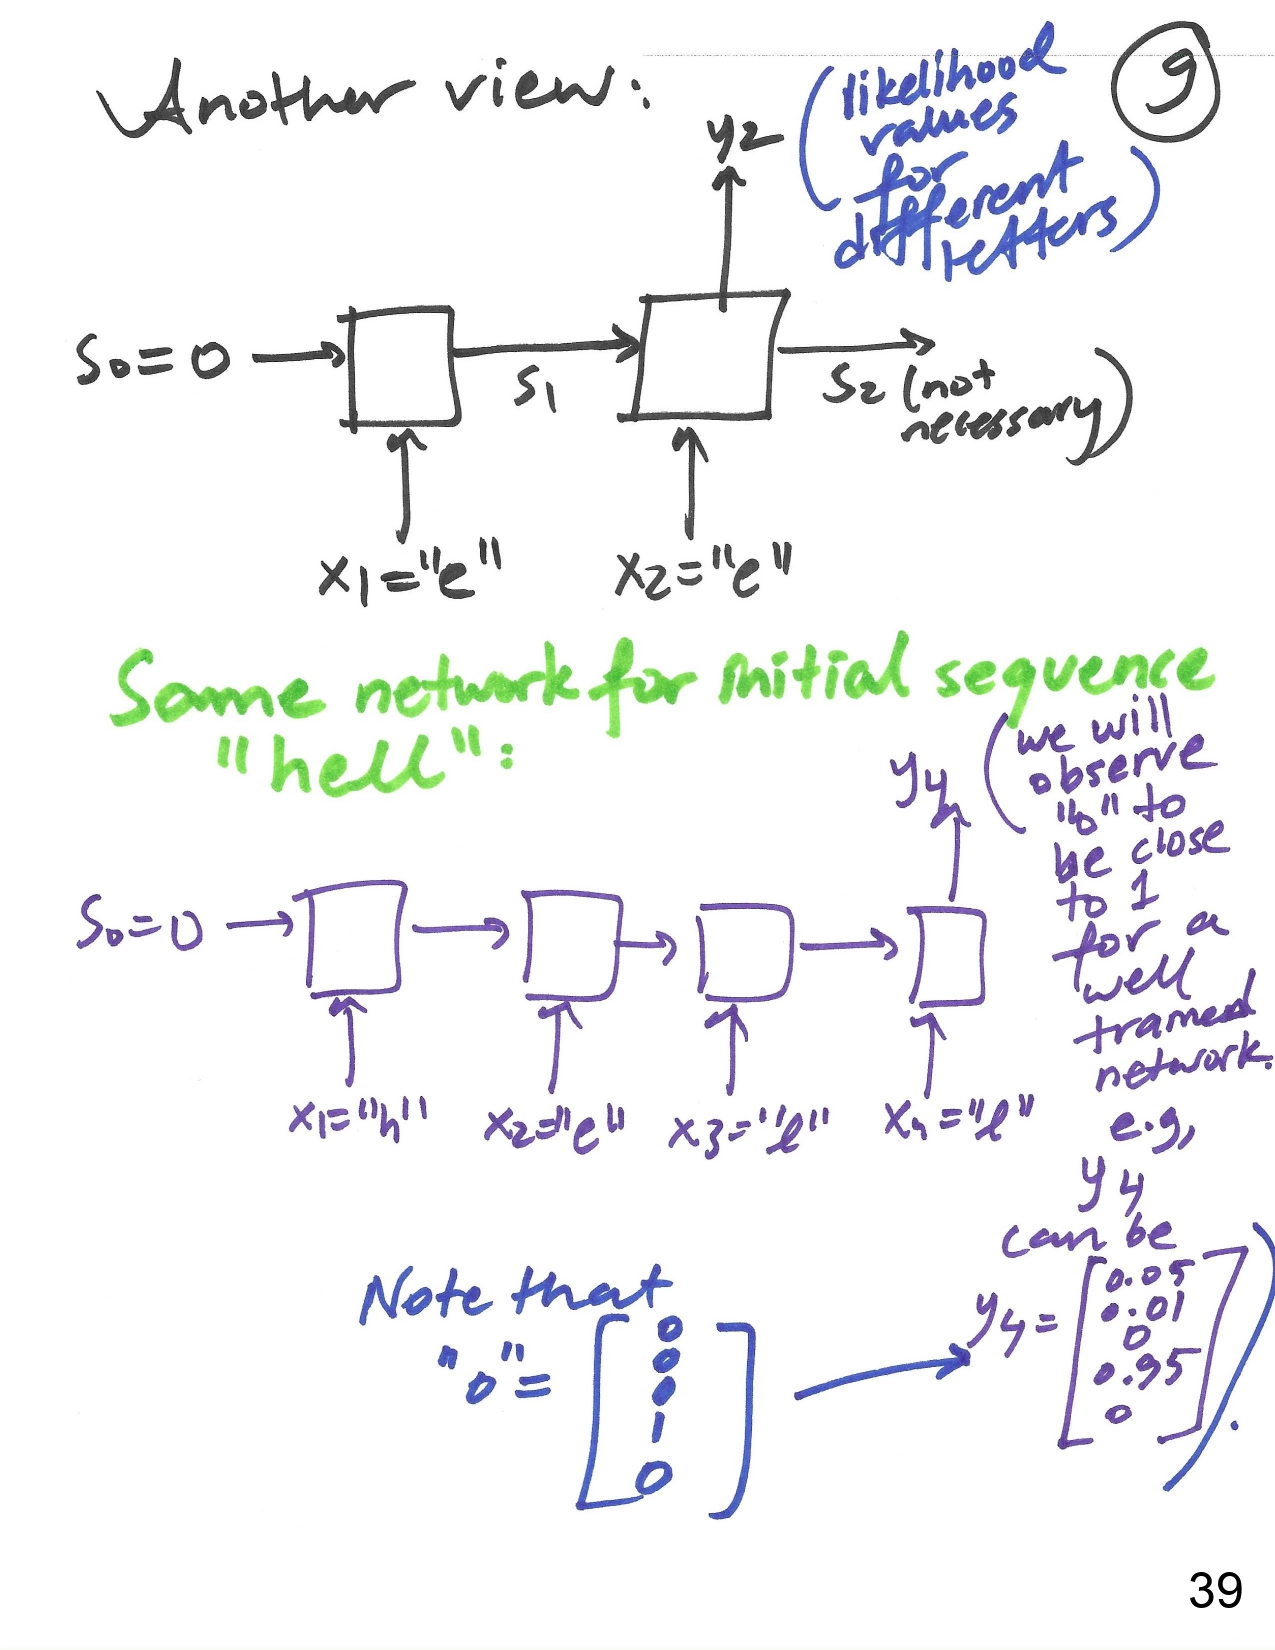 Another view:
9
(likelihood
values
for
different
letters)
y2
S0=0
S1
S2 (not
necessary)
x1="e"
x2="e"
Same network for initial sequence
"hell":
y4
(we will
observe
"o" to
be close
to 1
for a
well
trained
network.
e.g,
y4
can be
S0=0
x1="h"
x2="e"
x3="l"
x4="l"
Note that
"o"=
0
0
0
1
0
y4=
0.05
0.01
0
0.95
0
).
39